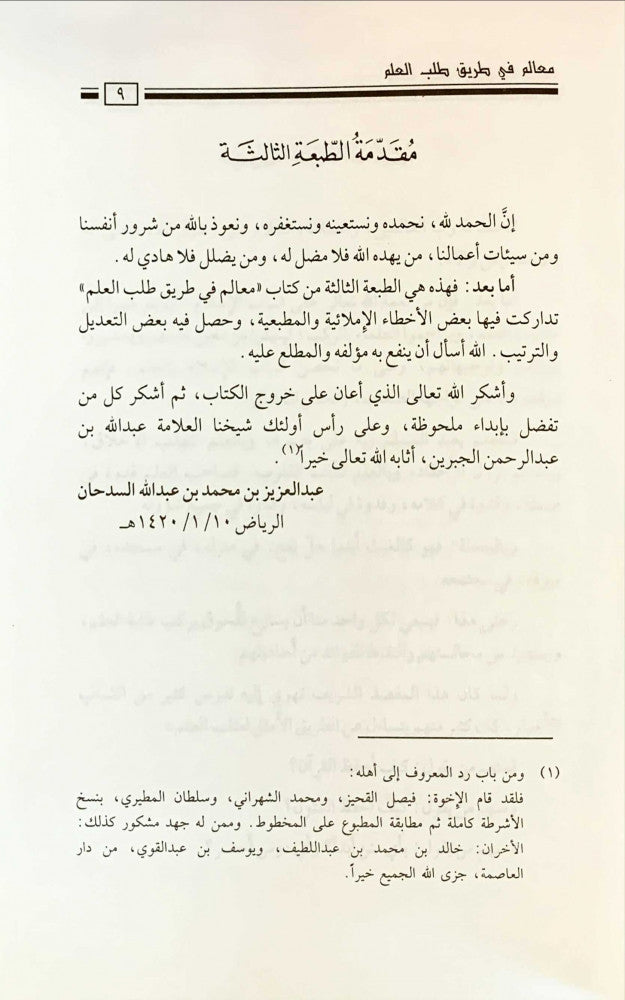 معالم في طريق طلب العلم
٩
مُقَدّمَةُ الطّبعَةِ الثالثَة
إنَّ الحمد لله، نحمده ونستعينه ونستغفره، ونعوذ بالله من شرور أنفسنا
ومن سيئات أعمالنا، من يهده الله فلا مضل له، ومن يضلل فلا هادي له.
أما بعد: فهذه هي الطبعة الثالثة من كتاب «معالم في طريق طلب العلم»
تداركت فيها بعض الأخطاء الإملائية والمطبعية، وحصل فيه بعض التعديل
والترتيب. الله أسأل أن ينفع به مؤلفه والمطلع عليه.
وأشكر الله تعالى الذي أعان على خروج الكتاب، ثم أشكر كل من
تفضل بإبداء ملحوظة، وعلى رأس أولئك شيخنا العلامة عبدالله بن
عبدالرحمن الجبرين، أثابه الله تعالى خيراً(١).
عبدالعزيز بن محمد بن عبدالله السدحان
الرياض ١٤٢٠/١/١٠هـ
(١) ومن باب رد المعروف إلى أهله:
فلقد قام الإخوة: فيصل القحيز، ومحمد الشهراني، وسلطان المطيري، بنسخ
الأشرطة كاملة ثم مطابقة المطبوع على المخطوط. وممن له جهد مشكور كذلك:
الأخران: خالد بن محمد بن عبداللطيف، ويوسف بن عبدالقوي، من دار
العاصمة، جزى الله الجميع خيراً.